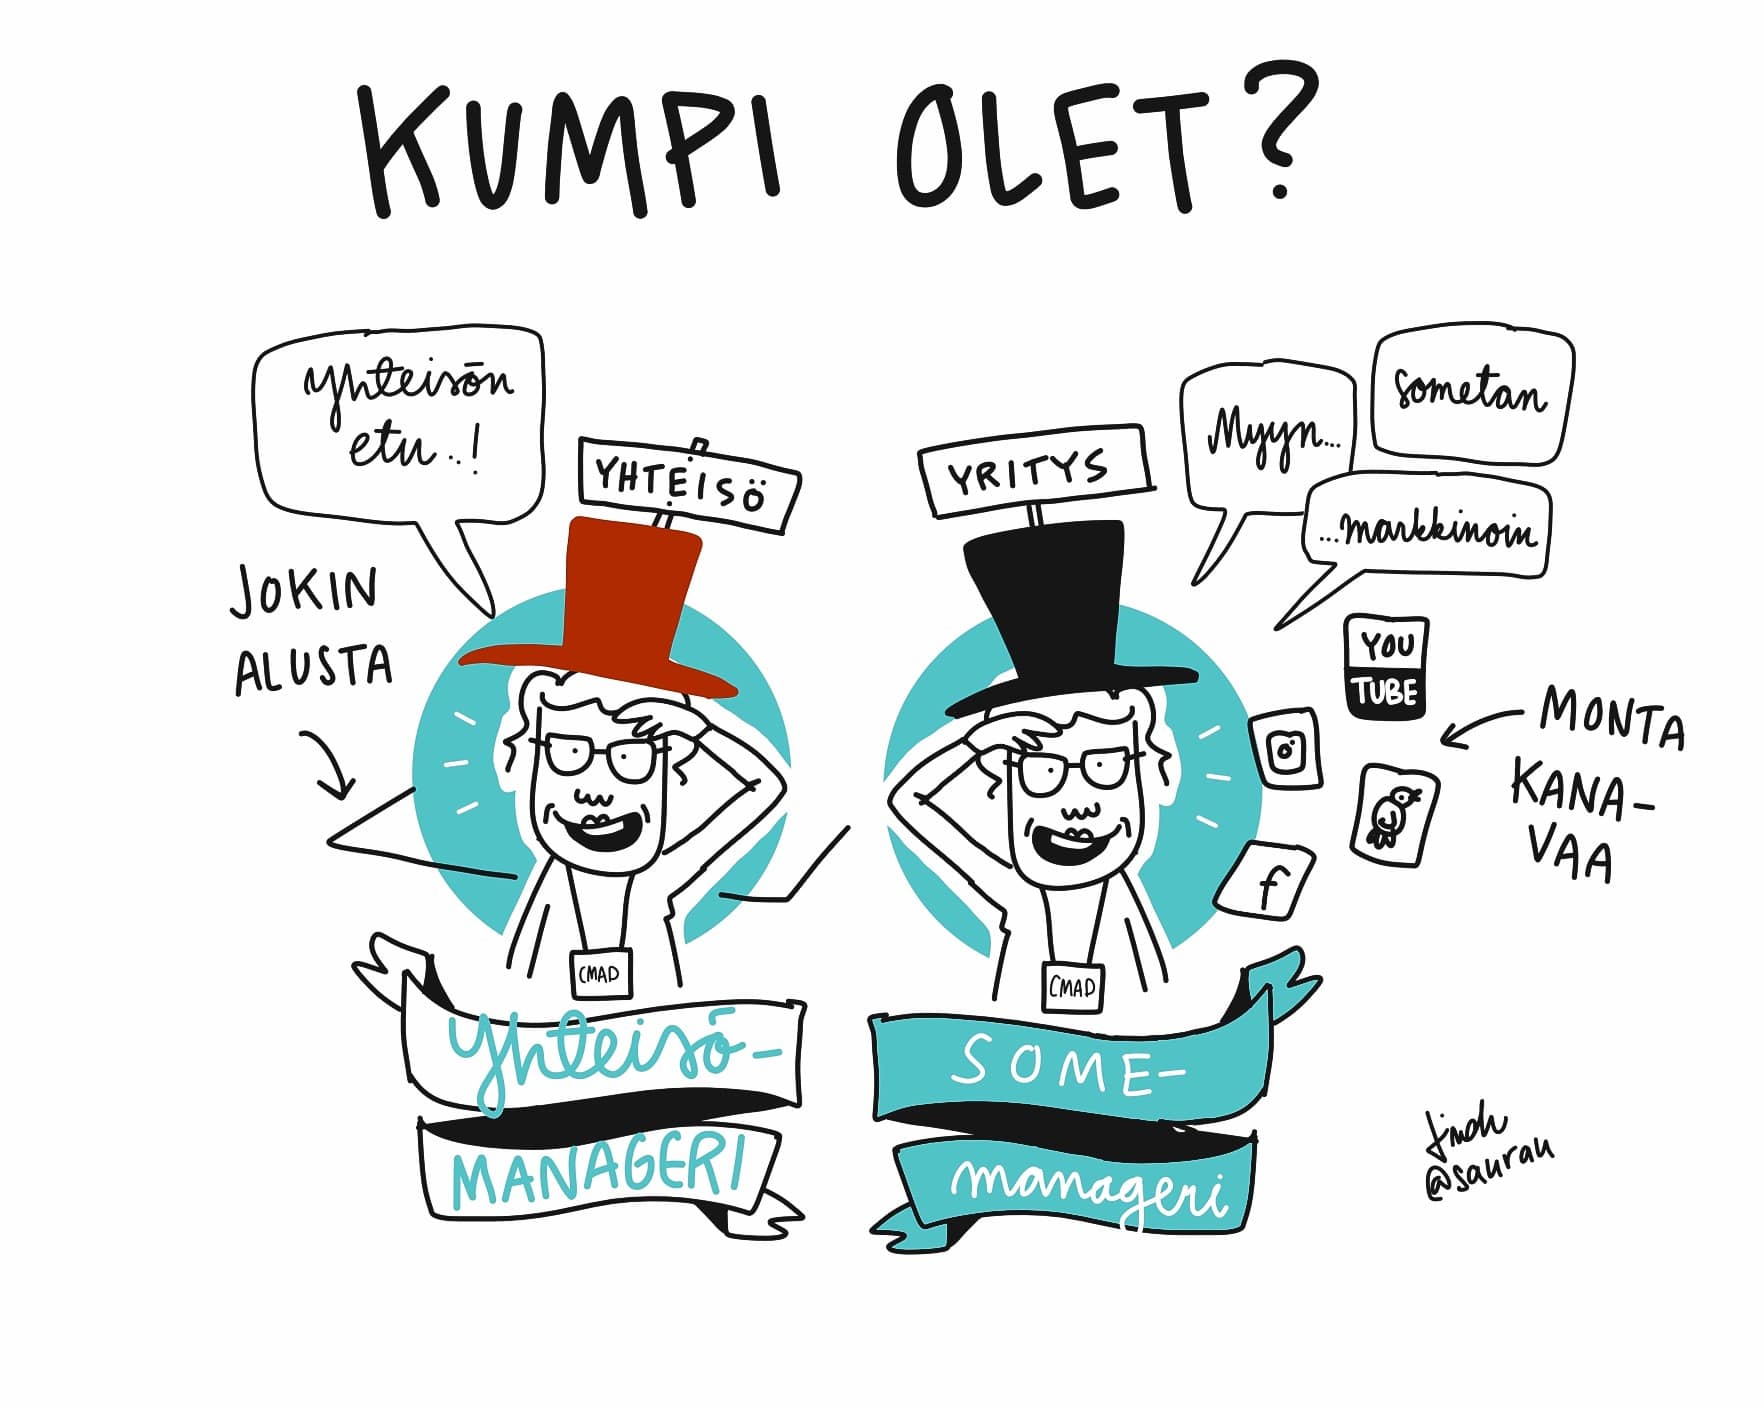 KUMPI OLET?
yhteisön
etu..!
YHTEISÖ
JOKIN
ALUSTA
CMAD
Yhteisö-
MANAGERI
YRITYS
Myyn...
sometan
...markkinoin
YOU
TUBE
f
MONTA
KANA-
VAA
CMAD
SOME-
manageri
@saurau